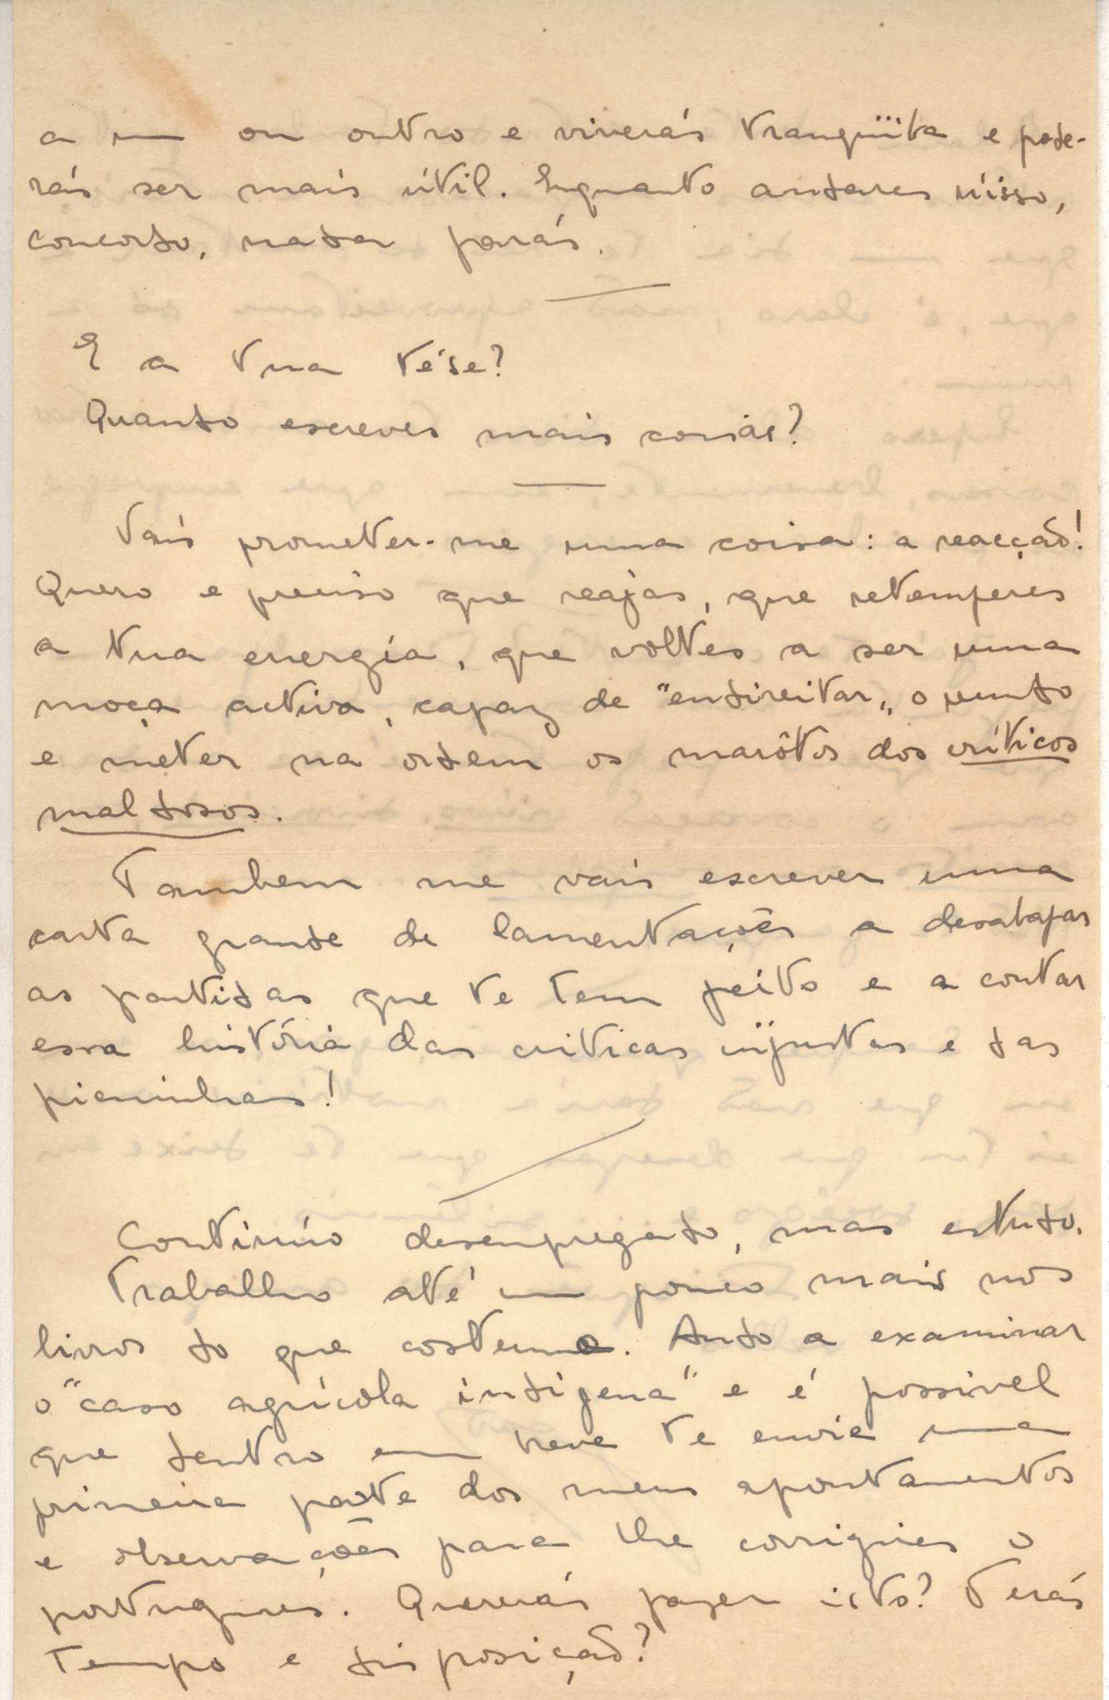 a um ou outro e viverás tranqüila e pode-
rás ser mais útil. Enquanto andares nisso,
concordo, nada farás.
E a tua tése?
Quando escreves mais coisas?
Vais prometer-me uma coisa: a reacção!
Quero e preciso que reajas, que retemperes
a tua energia, que voltes a ser uma
moça activa, capaz de "endireitar" o mundo
e meter na ordem os marôtos dos críticos
maldosos.
Tambem me vais escrever uma
carta grande de lamentações a desabafar
as partidas que te tem feito e a contar
essa história das criticas injustas e das
picuinhas!
Continúo desempregado, mas estudo.
Trabalho até um pouco mais nos
livros do que costumo. Ando a examinar
o "caso agrícola indígena" e é possivel
que dentro em breve te envie uma
primeira parte dos meus apontamentos
e observações para lhe corrigires o
português. Quererás fazer isto? Terás
tempo e disposição?